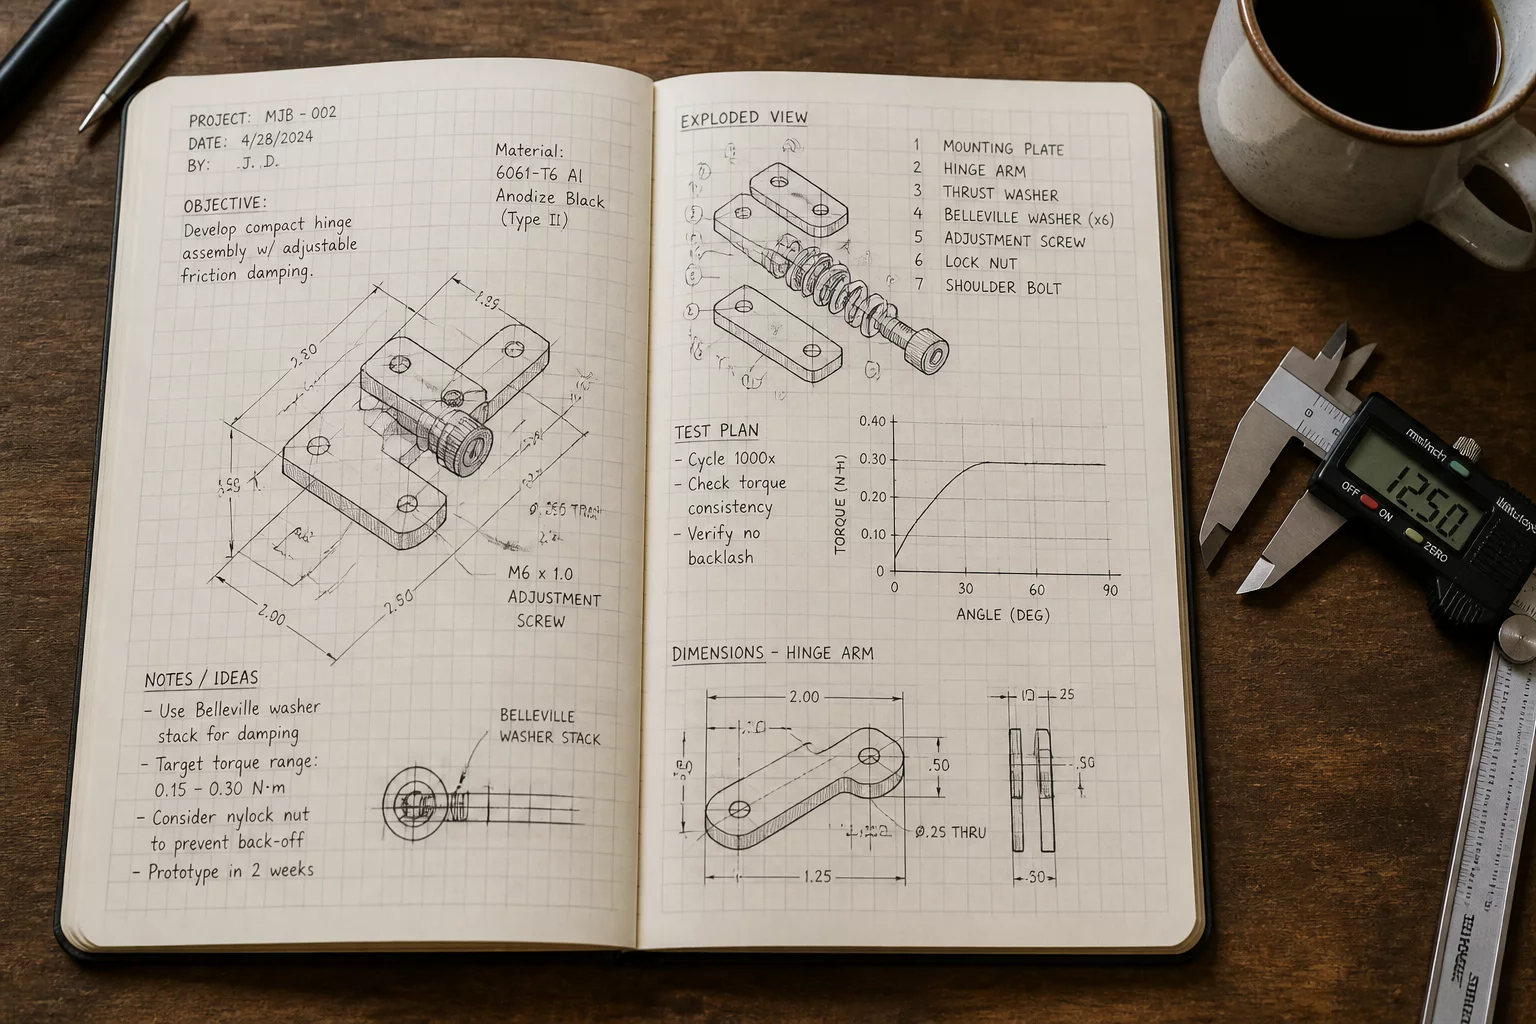 PROJECT: MJB - 002
DATE: 4/28/2024
BY: J. D.
Material:
6061-T6 Al
Anodize Black
(Type II)
OBJECTIVE:
Develop compact hinge
assembly w/ adjustable
friction damping.
2.00
2.50
M6 x 1.0
ADJUSTMENT
SCREW
NOTES / IDEAS
- Use Belleville washer
stack for damping
- Target torque range:
0.15 - 0.30 N·m
- Consider nylock nut
to prevent back-off
- Prototype in 2 weeks
BELLEVILLE
WASHER STACK
EXPLODED VIEW
1 MOUNTING PLATE
2 HINGE ARM
3 THRUST WASHER
4 BELLEVILLE WASHER (x6)
5 ADJUSTMENT SCREW
6 LOCK NUT
7 SHOULDER BOLT
TEST PLAN
- Cycle 1000x
- Check torque
consistency
- Verify no
backlash
TORQUE
0.40
0.30
0.20
0.10
0
0 30 60 90
ANGLE (DEG)
DIMENSIONS - HINGE ARM
2.00
.50
Ø.25 THRU
1.25
25
.50
OFF
ON
ZERO
12.50